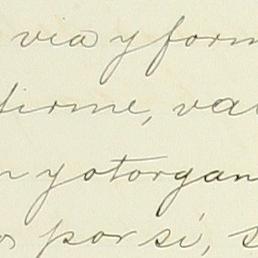 via y form
firme, va
y otorgan
por si, s